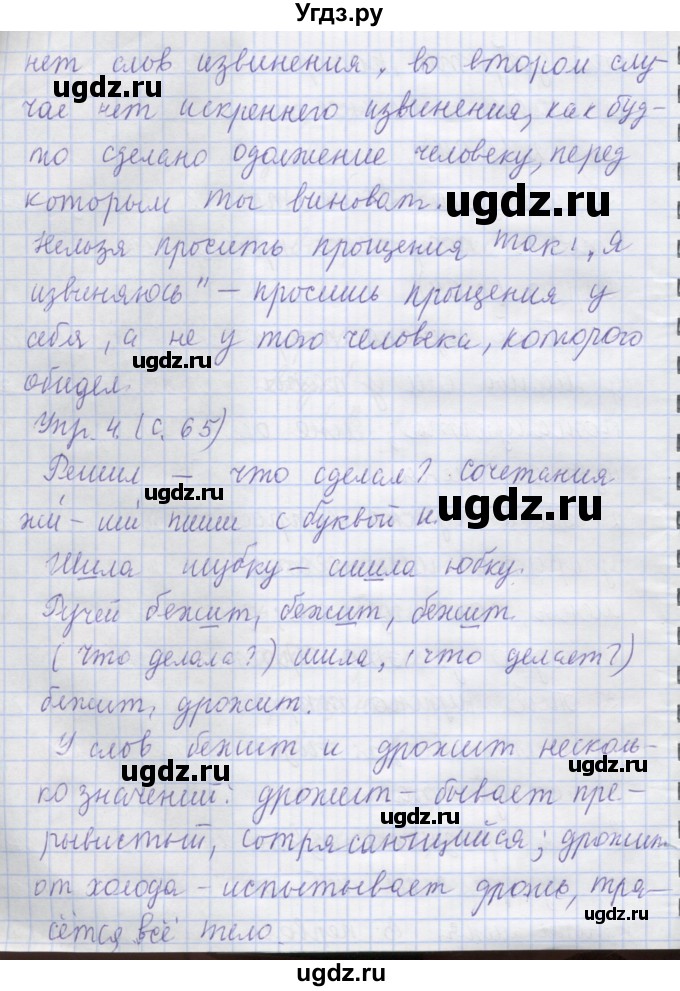 Угдз.ру
нет слов извинения, во втором слу-
чае нет искреннего извинения, как буд-
то сделано одолжение человеку, перед
которым ты виноват.
Нельзя просить прощения так: „Я
извиняюсь" – просишь прощения у
себя, а не у того человека, которого
обидел.
Упр. 4. (с. 65)
Решил – что сделал? сочетания
жи́ – ши́ пиши с буквой и.
Шила шубку – сшила юбку.
Ручей бежит, бежит, бежит.
(Что делала?) шила, (что делает?)
бежит, дрожит.
У слов бежит и дрожит несколь-
ко значений: дрожит – бывает пре-
рывистый, сотрясающийся; дрожит
от холода – испытывает дрожь, тря-
сётся всё тело.
ugdz.ru
ugdz.ru
ugdz.ru
ugdz.ru
ugdz.ru
ugdz.ru
ugdz.ru
ugdz.ru
ugdz.ru
ugdz.ru
ugdz.ru
ugdz.ru